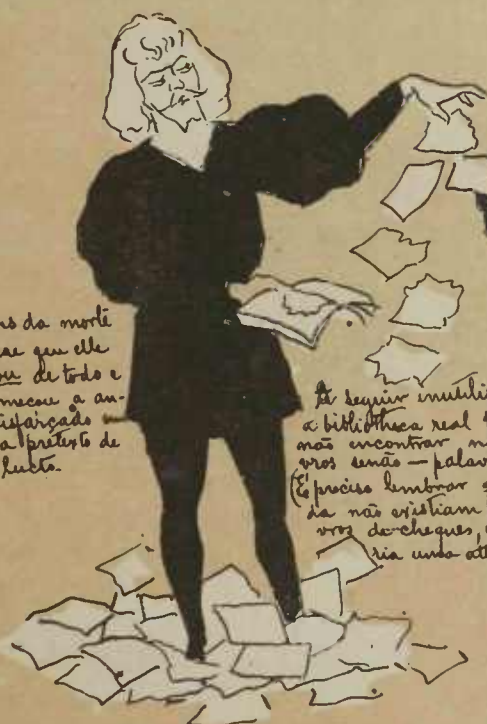 ns da morte
que elle
ou de todo e
meçou a an-
isfarçado
a pretexto de
lucto.
A seguir inutiliz
a bibliotheca real
não encontrar n
vros senão — palav
(É preciso lembrar
da não existiam
vros de cheques,
ria uma att